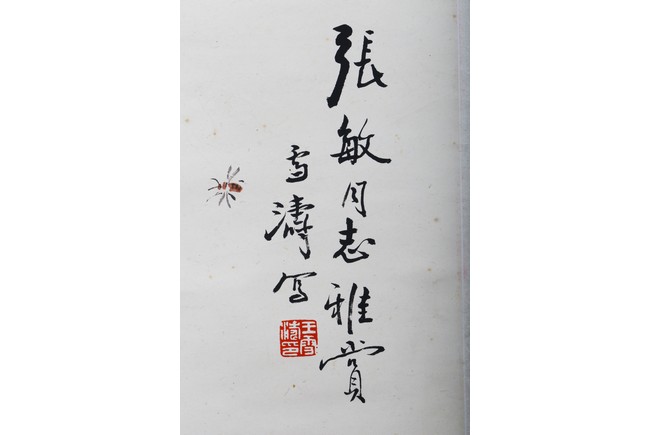 張敏同志雅賞
雪濤寫
王雪濤印